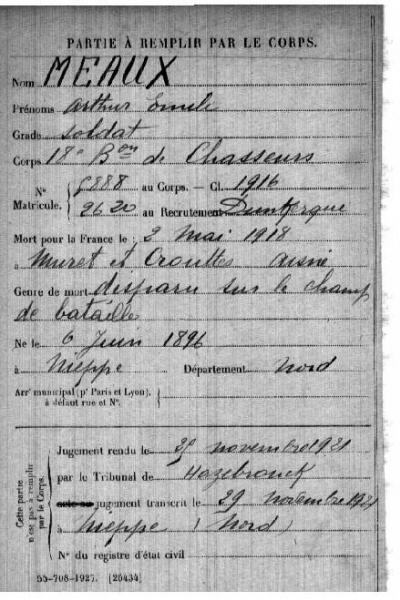 PARTIE À REMPLIR PAR LE CORPS.
Nom MEAUX
Prénoms Arthur Emile
Grade soldat
Corps 18e Bon de Chasseurs
N° Matricule. 888 au Corps. — Cl. 1916
9620 au Recrutement Dunkerque
Mort pour la France le 2 Mai 1918
à Muret et Crouttes aisne
Genre de mort disparu sur le champ
de bataille
Né le 6 Juin 1896
à Nieppe Département Nord
Arrt municipal (pr Paris et Lyon),
à défaut rue et N°.
Cette partie
n'est pas à remplir
par le Corps.
Jugement rendu le novembre 1921
par le Tribunal de Hazebrouck
jugement transcrit le 29 novembre 1921
à Nieppe (Nord)
N° du registre d'état civil
55-708-1927. [26434]